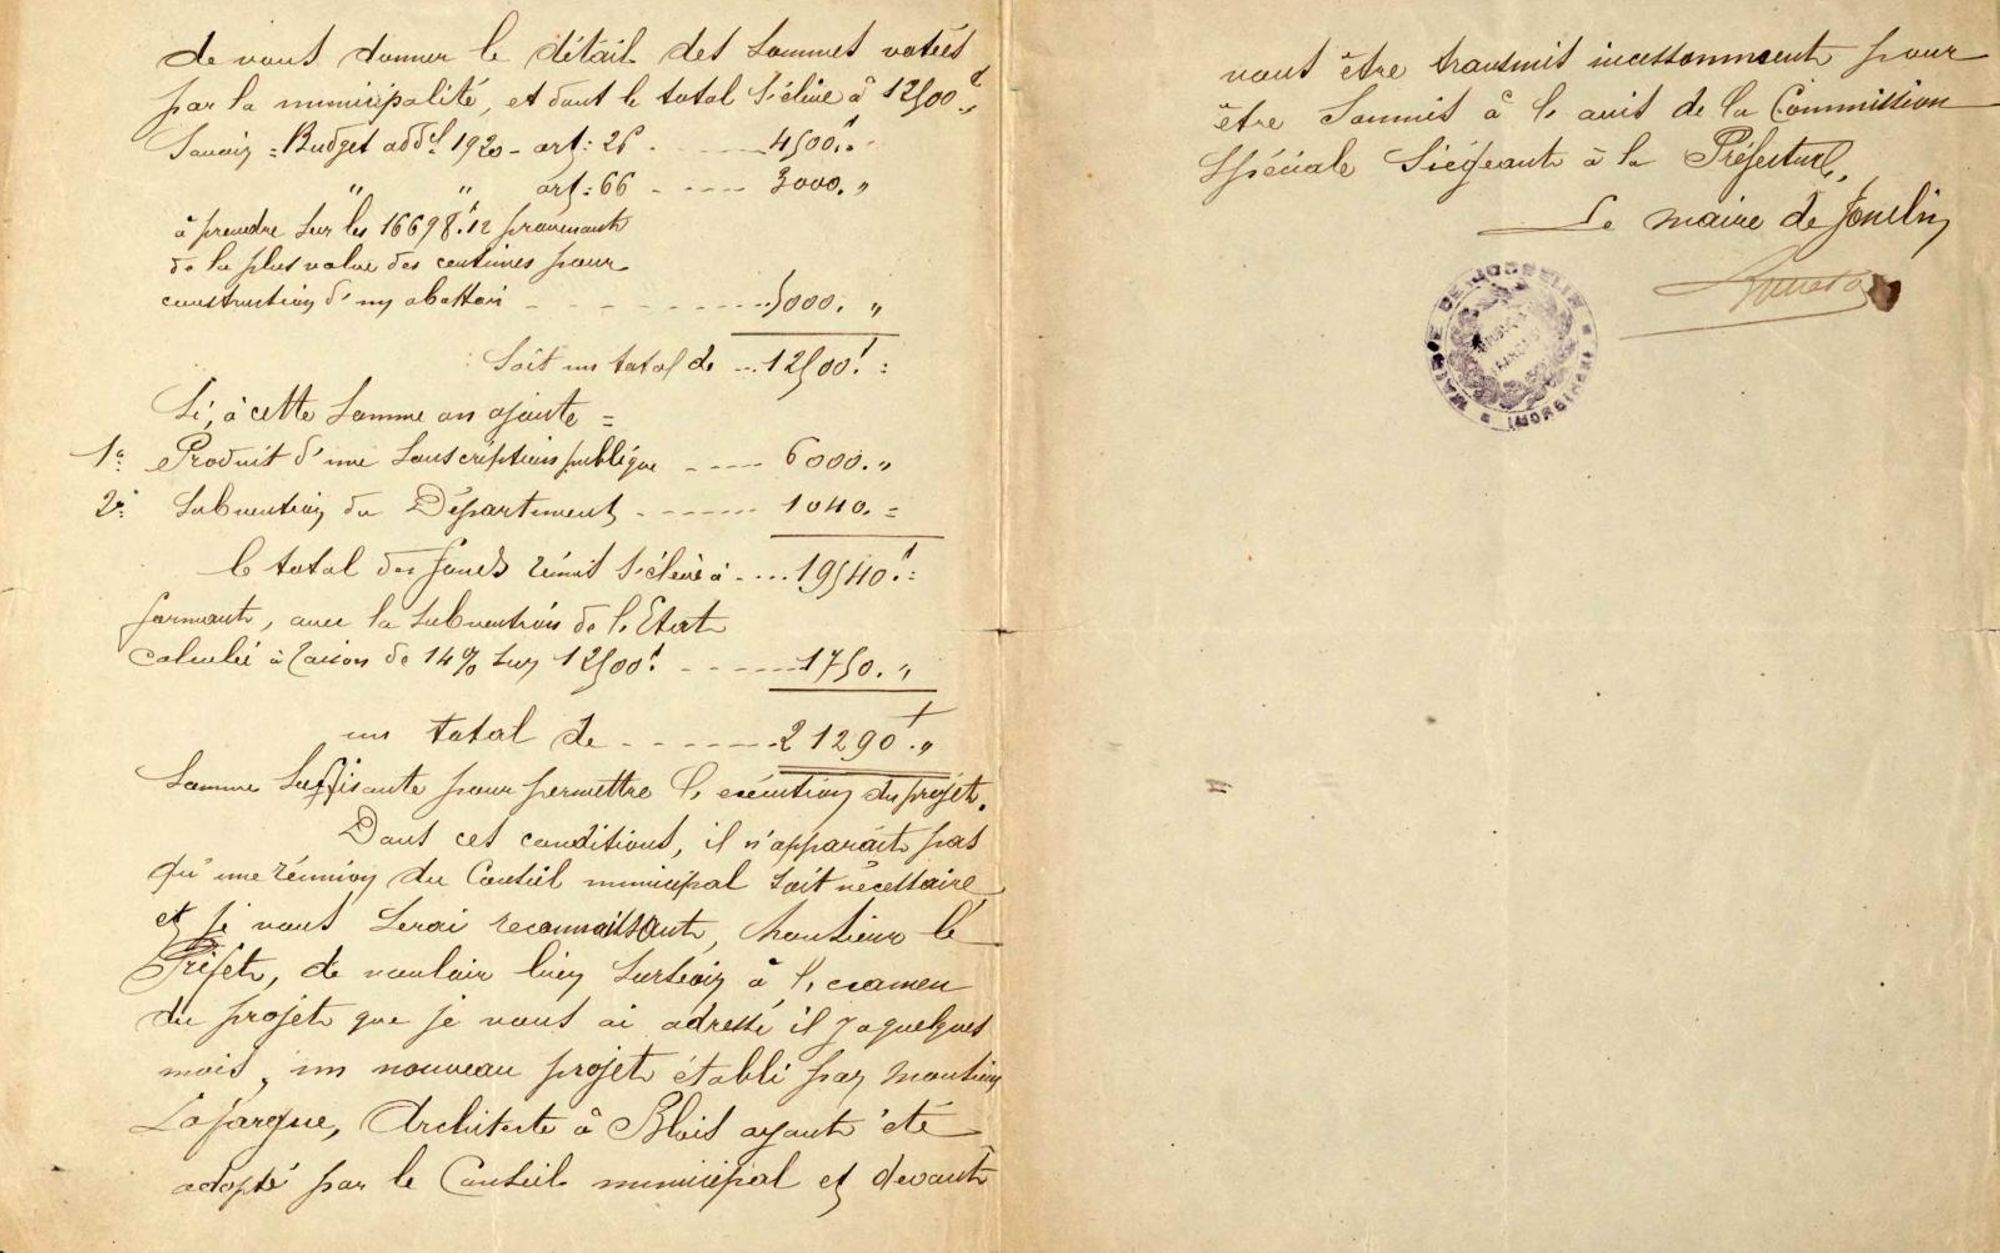 de vous donner le détail des sommes votées
par la municipalité, et dont le total s'élève à 12500f "
Savoir = Budget addel 1920 - art: 26 - - - - 4500f "
" " art: 66 - - - - 3000. "
à prendre sur les 16698f.12 provenant
de la plus value des centimes pour
construction d'un abattoir - - - - - - - - 5000. "
Soit un total de ... 12500f. =
Si, à cette somme on ajoute =
1o: Produit d'une souscription publique - - - - 6000. "
2o: Subvention du Département - - - - - - 1040. =
le total des fonds réunis s'élève à .... 19540f. =
formant, avec la subvention de l'Etat
calculée à raison de 14% sur 12500f. - - - - - - 1750. "
un total de - - - - - - 21290f. "
Somme suffisante pour permettre l'exécution du projet.
Dans ces conditions, il n'apparait pas
qu'une réunion du Conseil municipal soit nécessaire
et je vous serai reconnaissant, Monsieur le
Préfet, de vouloir bien surseoir à l'examen
du projet que je vous ai adressé il y a quelques
mois, un nouveau projet établi par Monsieur
Lafargue, Architecte à Blois ayant été
adopté par le Conseil municipal et devant
vous être transmis incessamment pour
être soumis à l'avis de la Commission
spéciale siégeant à la Préfecture.
Le maire de Josselin
MAIRIE DE JOSSELIN
(MORBIHAN)